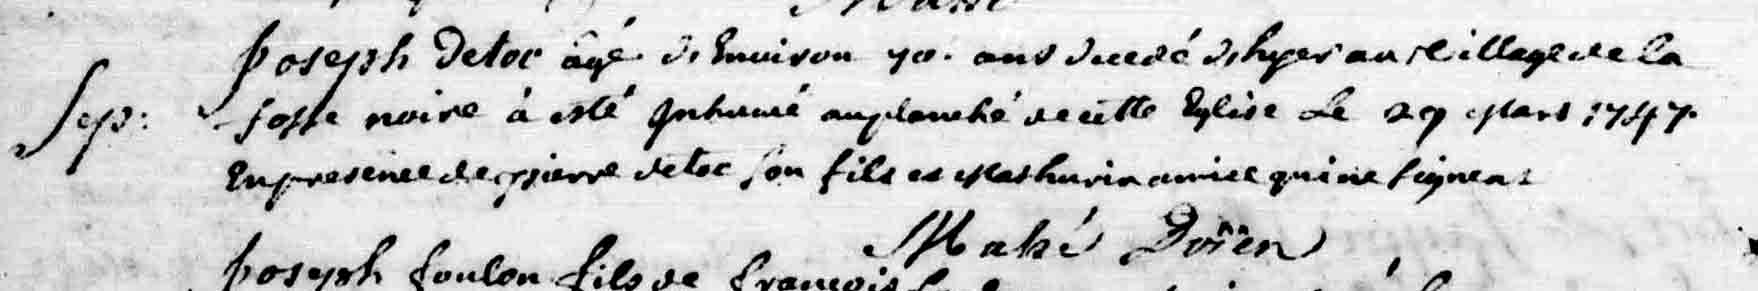 Joseph Detoc âgé d'Environ 70. ans decedé d'hyer au Village de la
Sep: fosse noire à esté Inhumé au planché de cette Eglise Le 29 Mars 1747.
En presence de pierre detoc son fils et Mathurin amice qui ne signent
Mahé Doïen
Joseph foulon fils de françois